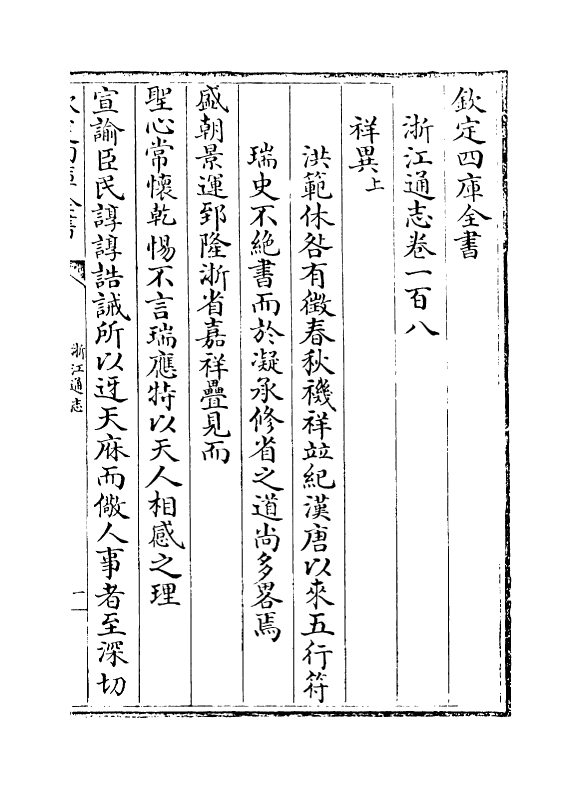 欽定四庫全書
浙江通志卷一百八
祥異上
洪範休咎有徵春秋禨祥竝紀漢唐以來五行符
瑞史不絶書而於凝承修省之道尚多畧焉
盛朝景運郅隆浙省嘉祥疊見而
聖心常懷乾惕不言瑞應特以天人相感之理
宣諭臣民諄諄誥誡所以迓天庥而儆人事者至深切
浙江通志
一